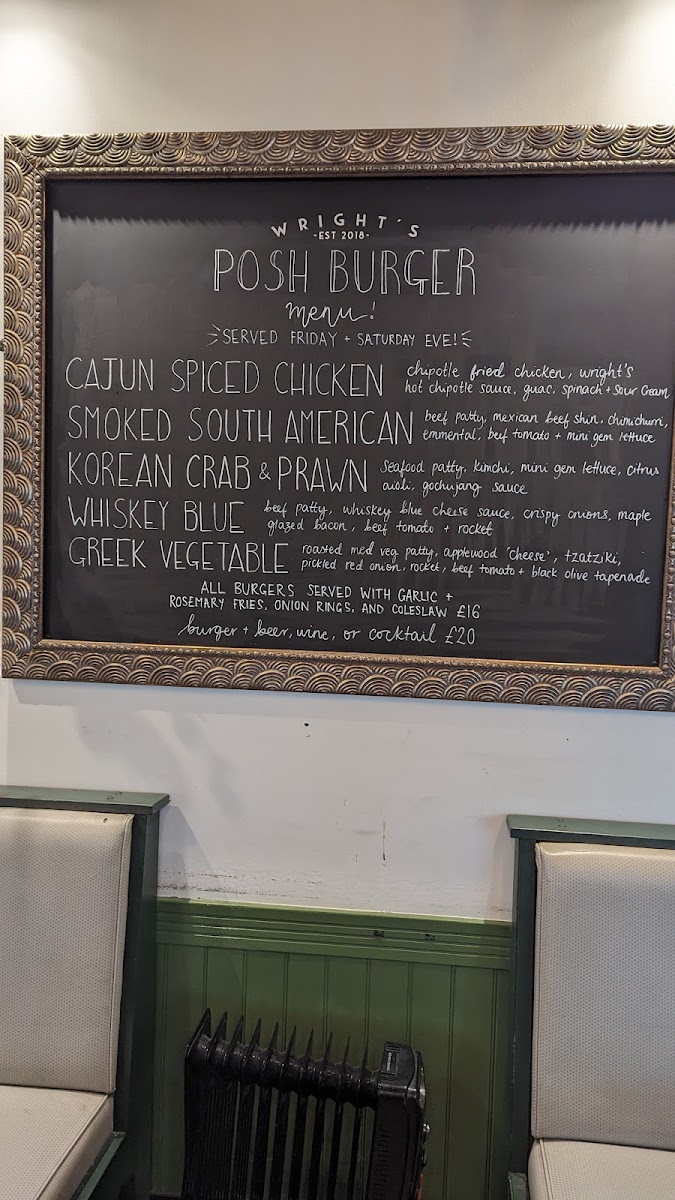 WRIGHT'S
-EST 2018-
POSH BURGER
menu!
SERVED FRIDAY + SATURDAY EVE!
CAJUN SPICED CHICKEN chipotle fried chicken, wright's
hot chipotle sauce, guac, spinach + sour cream
SMOKED SOUTH AMERICAN beef patty, mexican beef shin, chimichurri,
emmental, beef tomato + mini gem lettuce
KOREAN CRAB & PRAWN seafood patty, kimchi, mini gem lettuce, citrus
aioli, gochujang sauce
WHISKEY BLUE beef patty, whiskey blue cheese sauce, crispy onions, maple
glazed bacon, beef tomato + rocket
GREEK VEGETABLE roasted med veg patty, applewood 'cheese', tzatziki,
pickled red onion, rocket, beef tomato + black olive tapenade
ALL BURGERS SERVED WITH GARLIC +
ROSEMARY FRIES, ONION RINGS, AND COLESLAW £16
burger + beer, wine, or cocktail £20